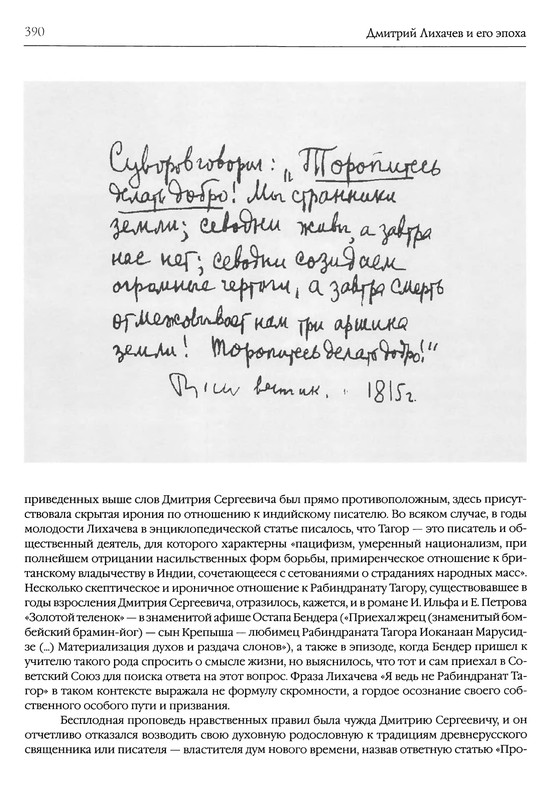 390
Дмитрий Лихачев и его эпоха
Суворов говорил: „Торопитесь
делать добро! Мы странники
земли; севодни живы, а завтра
нас нет; севодни созидаем
огромные чертоги, а завтра смерть
отмежовывает нам три аршина
земли! Торопитесь делать добро!“
вестник. 1815г.
приведенных выше слов Дмитрия Сергеевича был прямо противоположным, здесь присут-
ствовала скрытая ирония по отношению к индийскому писателю. Во всяком случае, в годы
молодости Лихачева в энциклопедической статье писалось, что Тагор — это писатель и об-
щественный деятель, для которого характерны «пацифизм, умеренный национализм, при
полнейшем отрицании насильственных форм борьбы, примиренческое отношение к бри-
танскому владычеству в Индии, сочетающееся с сетованиями о страданиях народных масс».
Несколько скептическое и ироничное отношение к Рабиндранату Тагору, существовавшее в
годы взросления Дмитрия Сергеевича, отразилось, кажется, и в романе И. Ильфа и Е. Петрова
«Золотой теленок» — в знаменитой афише Остапа Бендера («Приехал жрец (знаменитый бом-
бейский брамин-йог) — сын Крепыша — любимец Рабиндраната Тагора Иоканаан Марусид-
зе (...) Материализация духов и раздача слонов»), а также в эпизоде, когда Бендер пришел к
учителю такого рода спросить о смысле жизни, но выяснилось, что тот и сам приехал в Со-
ветский Союз для поиска ответа на этот вопрос. Фраза Лихачева «Я ведь не Рабиндранат Та-
гор» в таком контексте выражала не формулу скромности, а гордое осознание своего соб-
ственного особого пути и призвания.
Бесплодная проповедь нравственных правил была чужда Дмитрию Сергеевичу, и он
отчетливо отказался возводить свою духовную родословную к традициям древнерусского
священника или писателя — властителя дум нового времени, назвав ответную статью «Про-